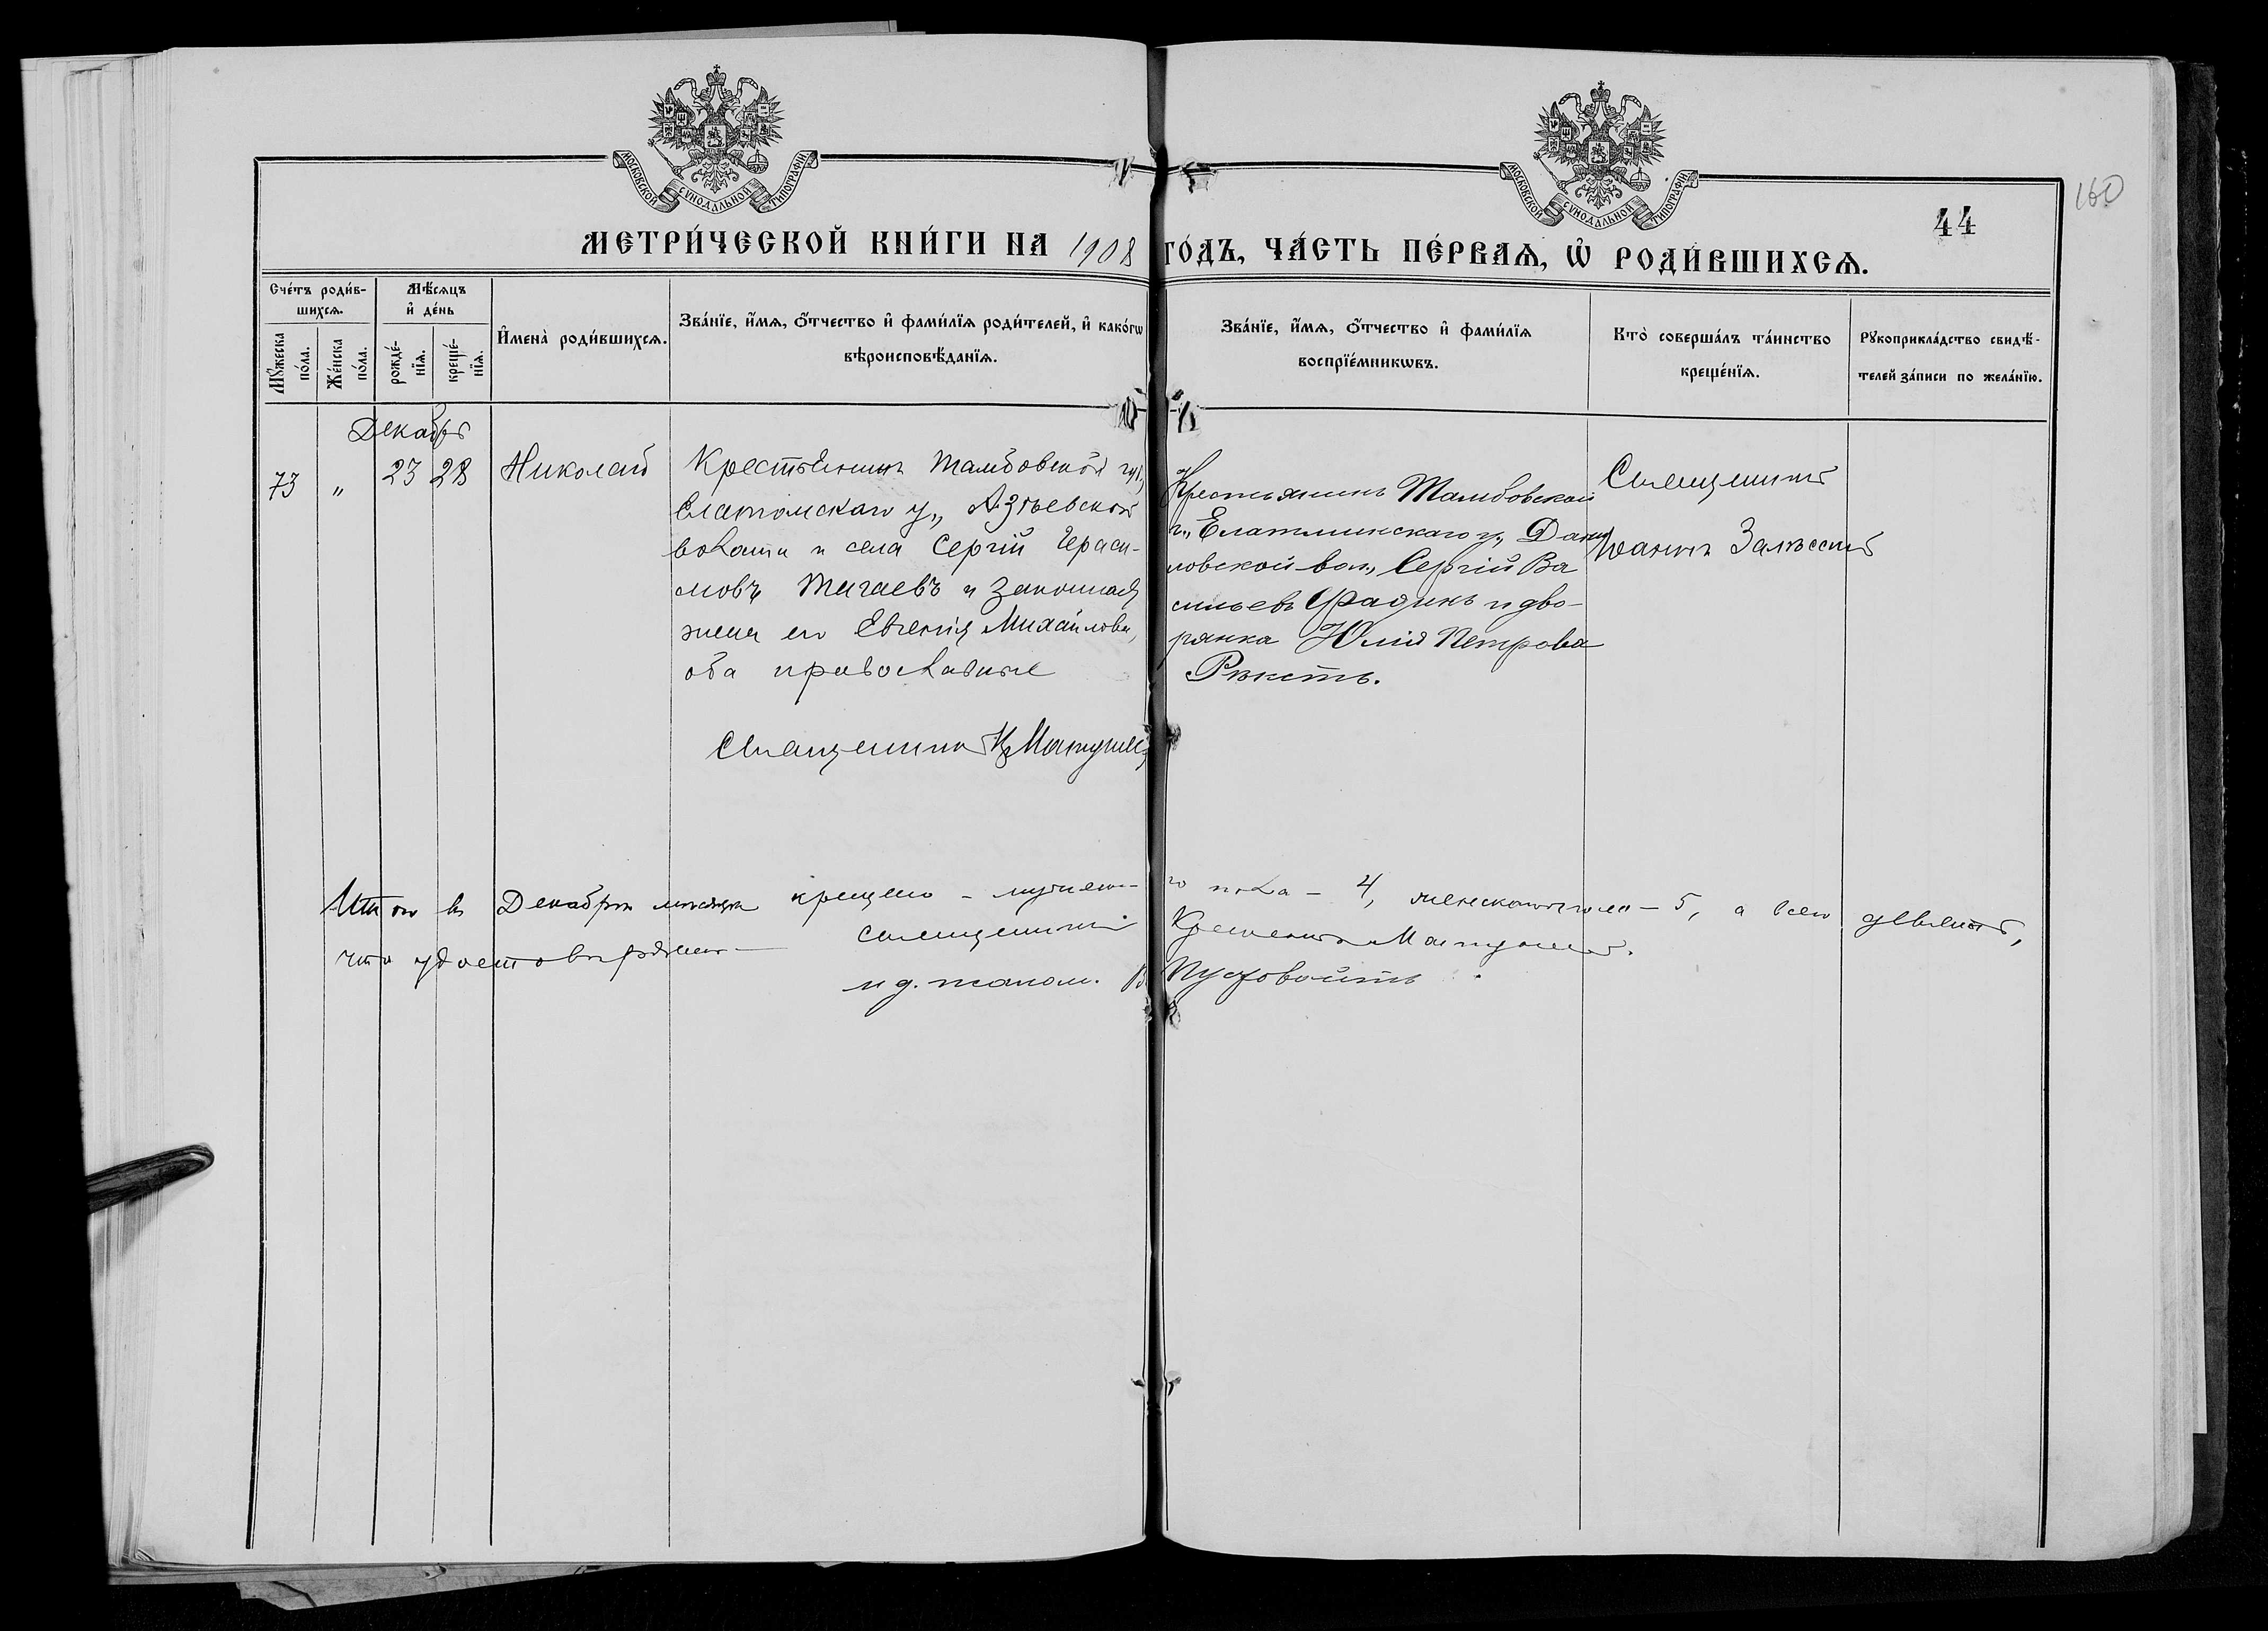 МОСКОВСКОЙ СѴНОДАЛЬНОЙ ТИПОГРАФІИ
МОСКОВСКОЙ СѴНОДАЛЬНОЙ ТИПОГРАФІИ
160
44
МЕТРИ́ЧЕСКОЙ КНИ́ГИ НА 1908 ГО́ДЪ, ЧА́СТЬ ПЕ́РВАѦ, Ѡ҆ РОДИ́ВШИХСѦ.
Сче́тъ роди́в-
шихсѧ.
Мꙋ́жеска по́ла.
Же́нска по́ла.
Мѣ́сѧцъ
и҆ де́нь
рожде́-
нїѧ.
креще́-
нїѧ.
И҆мена̀ роди́вшихсѧ.
Зва́нїе, и҆́мѧ, ѻ҆́тчество и҆ фами́лїѧ роди́телей, и҆ како́гѡ
вѣроисповѣ́данїѧ.
Зва́нїе, и҆́мѧ, ѻ҆́тчество и҆ фами́лїѧ
воспрїе́мникѡвъ.
Кто̀ соверша́лъ та́инство
креще́нїѧ.
Рꙋкоприкла́дство свидѣ́-
телей за́писи по жела́нїю.
Декабрь
73 " 23 28 Николай
Крестьянинъ Тамбовской губ.,
Елатомскаго у., Азѣевской
волости и села Сергій Гераси-
мовъ Тигаевъ и законная
жена его Евгенія Михайлова,
оба православные
Крестьянинъ Тамбовской
г., Елатминскаго у., Дани
ловской вол., Сергій Ва
сильевъ Фадинъ и дво-
рянка Юлія Петрова
Священникъ
Іоаннъ Залѣсскій
Священникъ К Матушев
Итого въ Декабрѣ мѣсяцѣ крещено - мужеско-го пола - 4, женскаго пола - 5, а всего девять,
что удостовѣряемъ - священникъ Матушев.
и д. псалом. В Пустовойтъ